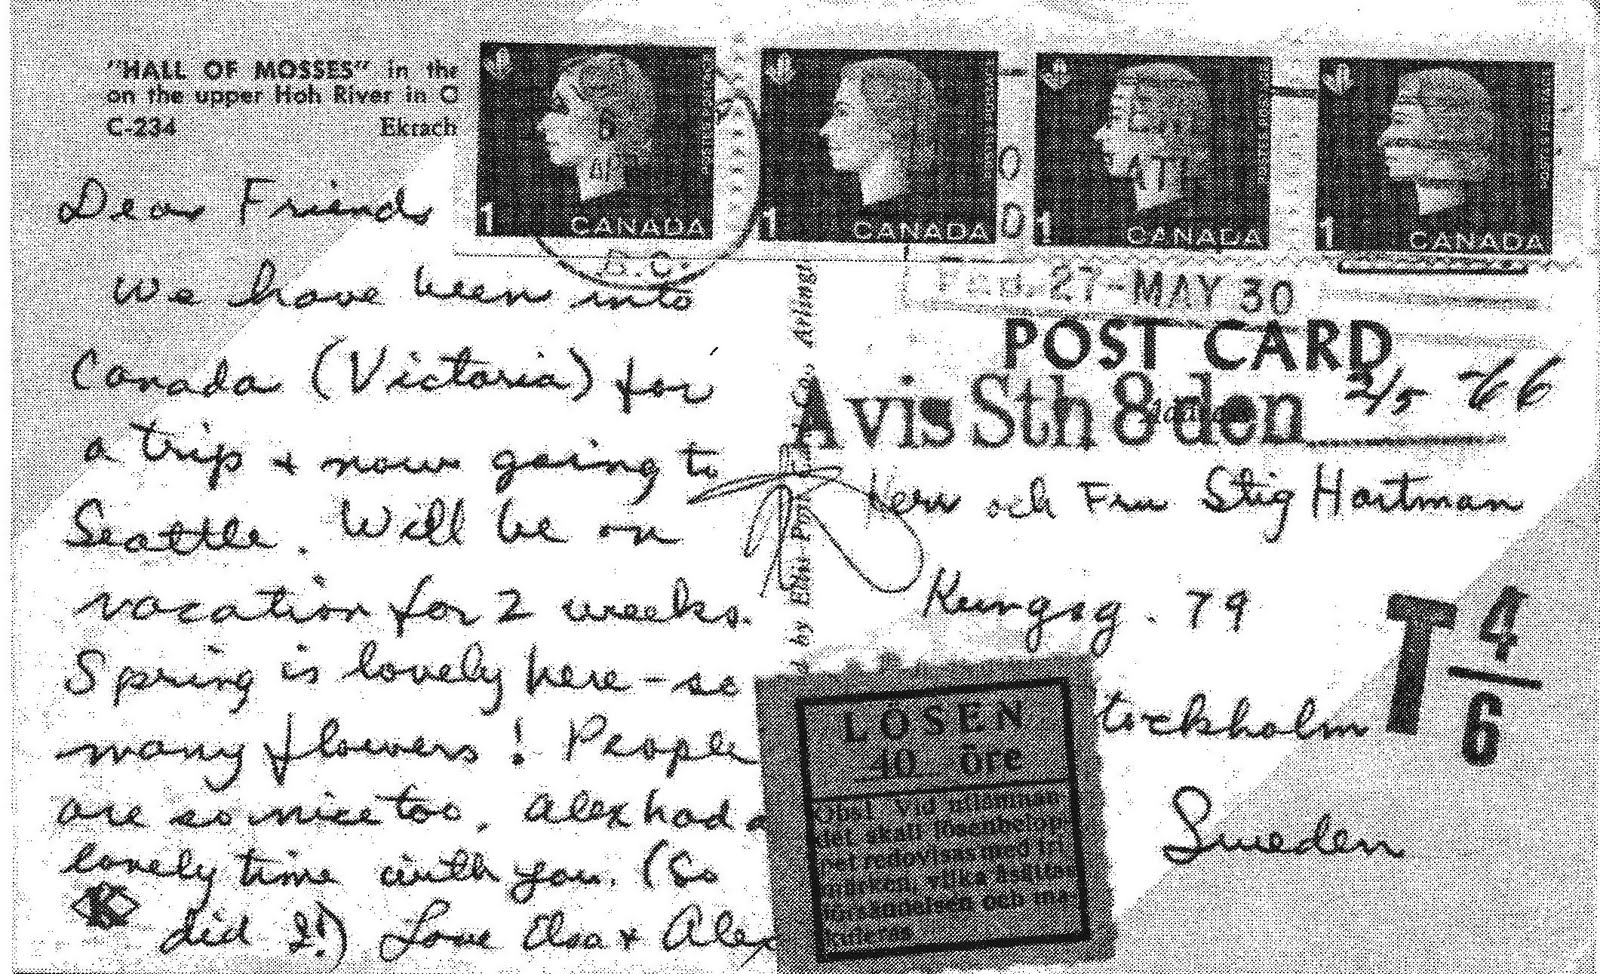 "HALL OF MOSSES" in the
on the upper Hoh River in O
C-234 Ektach
1 CANADA
1 CANADA
1 CANADA
1 CANADA
B.C.
27-MAY 30
POST CARD
Avis Sth 8 den 2/5 -66
Herr och Fru Stig Hartman
Kungsg. 79
tockholm
Sweden
T 4/6
Dear Friends
We have been into
Canada (Victoria) for
a trip + now going to
Seattle. Will be on
vacation for 2 weeks.
Spring is lovely here - so
many flowers! People
are so nice too. Alex had a
lovely time with you. (So
did I!) Love Elsa + Alex
K
d by Ellis Post Card Co., Arlingt
LÖSEN
40 öre
Obs! Vid utlämnan-
det skall lösenbelop-
pet redovisas med fri-
märken, vilka åsättas
försändelsen och ma-
kuleras